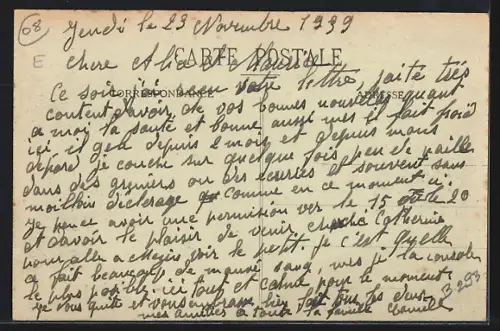 68
E
Jendi le 23 Novembre 1939
Chere Alice et Maurice
CARTE POSTALE
CORRESPONDANCE
ADRESSE
Ce soir reçu votre lettre faite très
content d'avoir de vos bonnes nouvelles quant
a moi la santé et bonne aussi mes il fait froid
ici il gele depuis 2 mois et depuis mon
depare je couche sur quelque fois peu de paille
dans des greniers ou des ecuries et souvent sans
eclerage comme en ce moment ci.
Je pence avoir une permision ver le 15 ou le 20
et d'avoir le plaisir de venir cherché Catherine
pour alle a voir le petit. je c'est quelle
ce fait beaucoup de mauvé sang, mes je la console
le plus posible. ici tout et calme pour le moment
je vous quitte et vous embrasse bien fort tous les deux
mes amitiés a toute la famille Camille
B 293